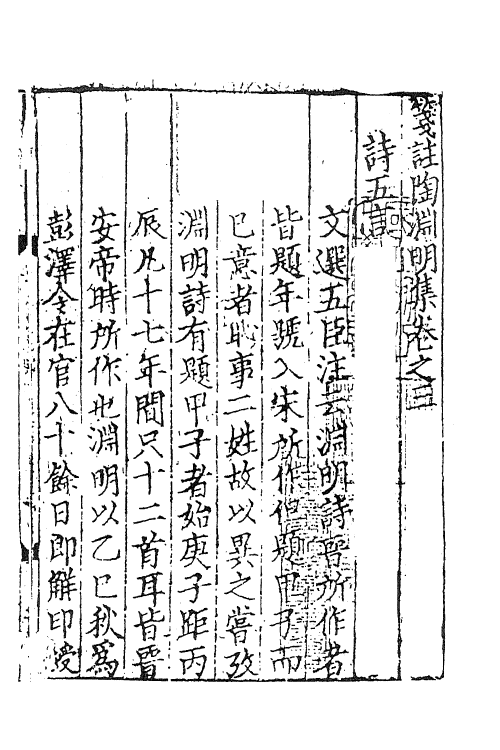 箋註陶淵明集卷之三
詩五言
文選五臣注云淵明詩晉所作者
皆題年號入宋所作但題甲子而
已意者恥事二姓故以異之嘗攷
淵明詩有題甲子者始庚子距丙
辰凡十七年間只十二首耳皆晉
安帝時所作也淵明以乙巳秋爲
彭澤令在官八十餘日即觧印綬